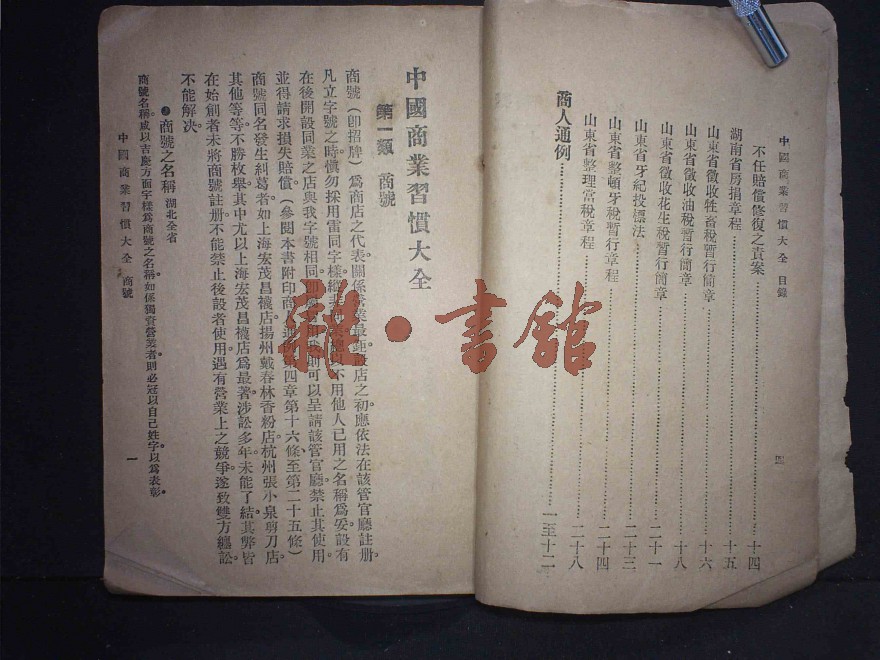 中國商業習慣大全　目錄
四
不任賠償修復之責案……十四
湖南省房捐章程……十五
山東省徵收牲畜稅暫行簡章……十六
山東省徵收油稅暫行簡章……十八
山東省徵收花生稅暫行簡章……二十一
山東省牙紀投標法……二十三
山東省整頓牙稅暫行章程……二十四
山東省整理當稅章程……二十八
商人通例……一至十二
中國商業習慣大全
第一類　商號
商號（卽招牌）爲商店之代表關係營業最鉅設店之初應依法在該管官廳註册
凡立字號之時愼勿採用雷同字樣不用他人已用之名稱爲妥設有
在後開設同業之店與我字號相同則可以呈請該管官廳禁止其使用
並得請求損失賠償（參閱本書附印商人通例第四章第十六條至第二十五條）
商號同名發生糾葛者如上海宏茂昌襪店揚州戴春林香粉店杭州張小泉剪刀店
其他等等不勝枚舉其中尤以上海宏茂昌襪店爲最著涉訟多年未能了結其弊皆
在始創者未將商號註册不能禁止後設者使用遇有營業上之競爭遂致雙方纏訟
不能解决
商號之名稱　湖北全省
商號名稱咸以吉慶方面字樣爲商號之名稱如係獨資營業者則必冠以自己姓字以爲表彰
中國商業習慣大全　商號
一
雜·書館